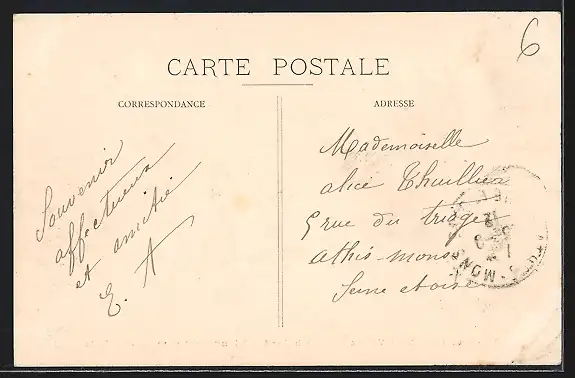 6
CARTE POSTALE
CORRESPONDANCE
ADRESSE
Souvenir
affectueux
et amitié
E. A
Mademoiselle
alice Thuillier
5 rue du triage
athis-mons
Seine et oise